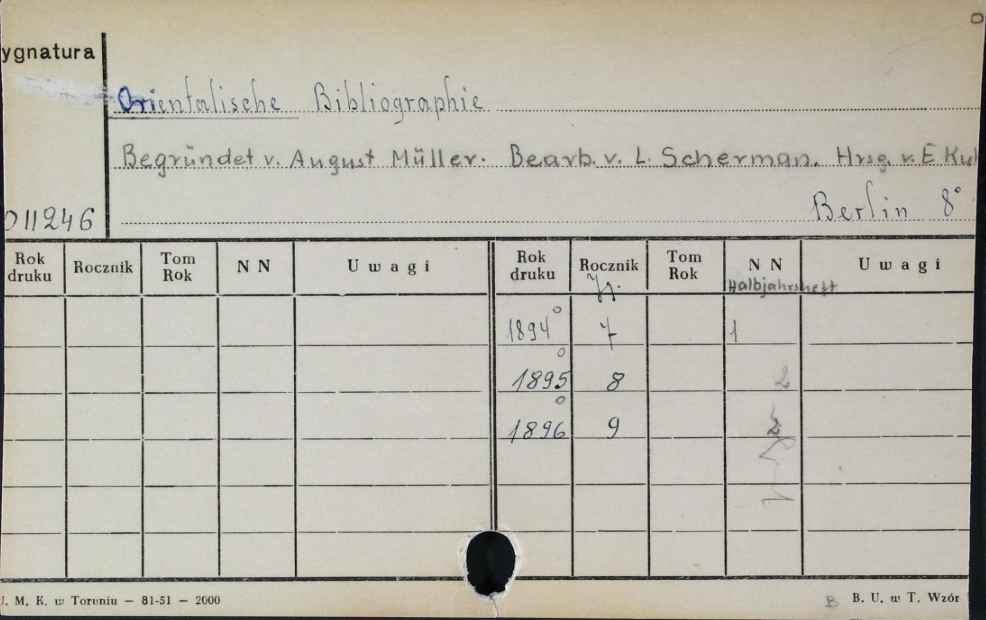 ygnatura
Orientalische Bibliographie
Begründet v. August Müller. Bearb. v. L. Scherman. Hrsg. v. E. Kuh
011246
Berlin 8°
Rok druku Rocznik Tom Rok N N Uwagi Rok druku Rocznik Tom Rok N N Uwagi
Halbjahrsheft
1894 7 1
1895 8 2
1896 9 2
J. M. K. w Toruniu — 81-51 — 2000
B B. U. w T. Wzór